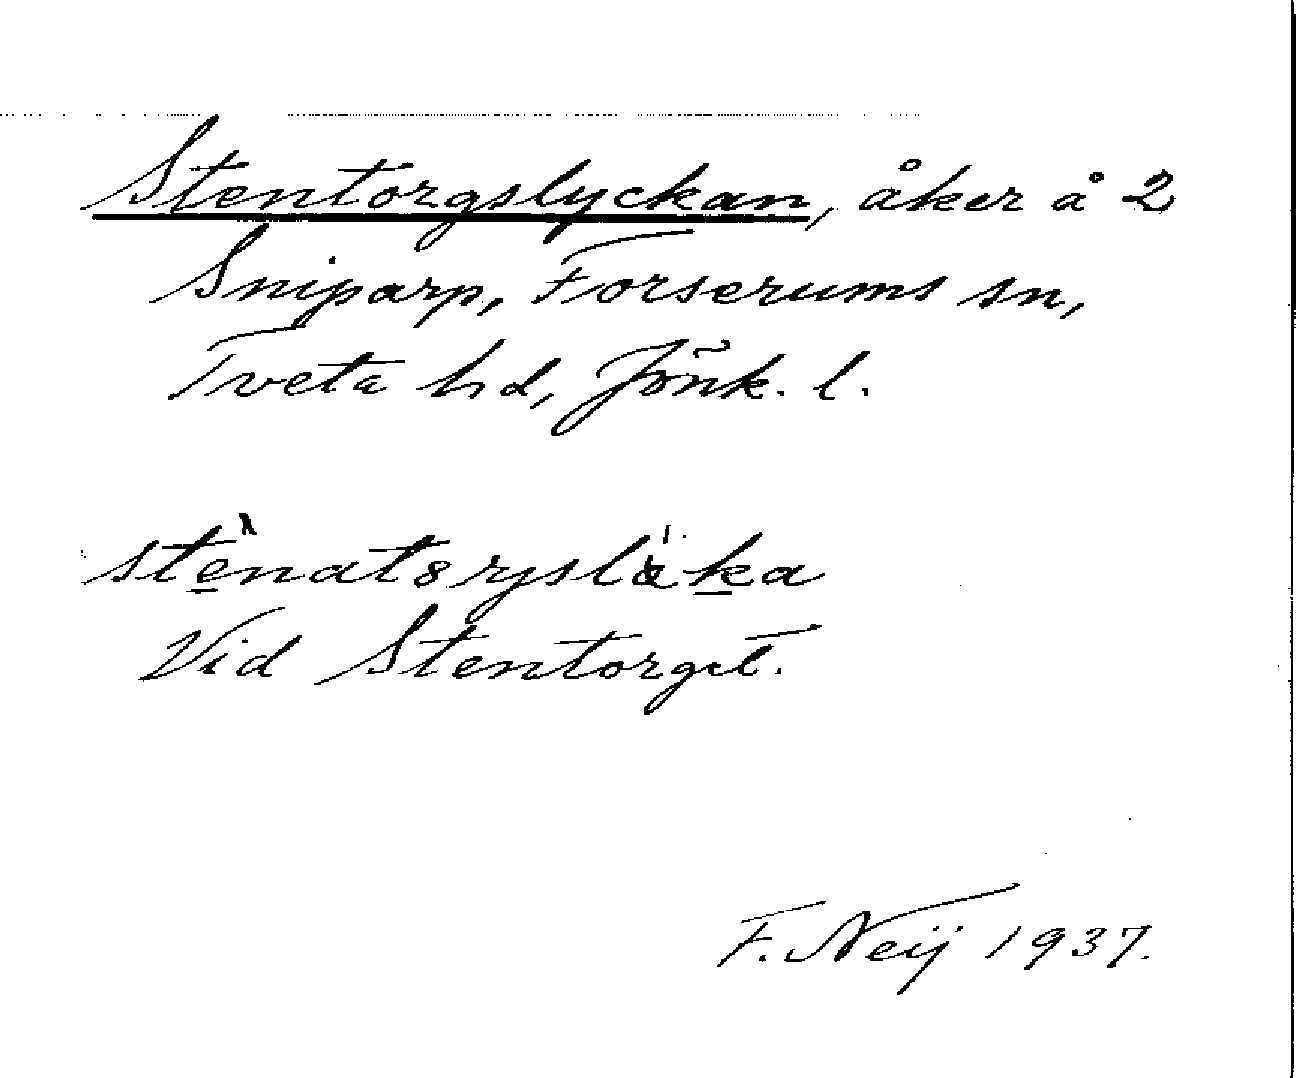 Stentorgslyckan, åker å 2
Sniparp, Forserums sn,
Tveta hd, Jönk. l.
Vid Stentorget.
F. Neij 1937.